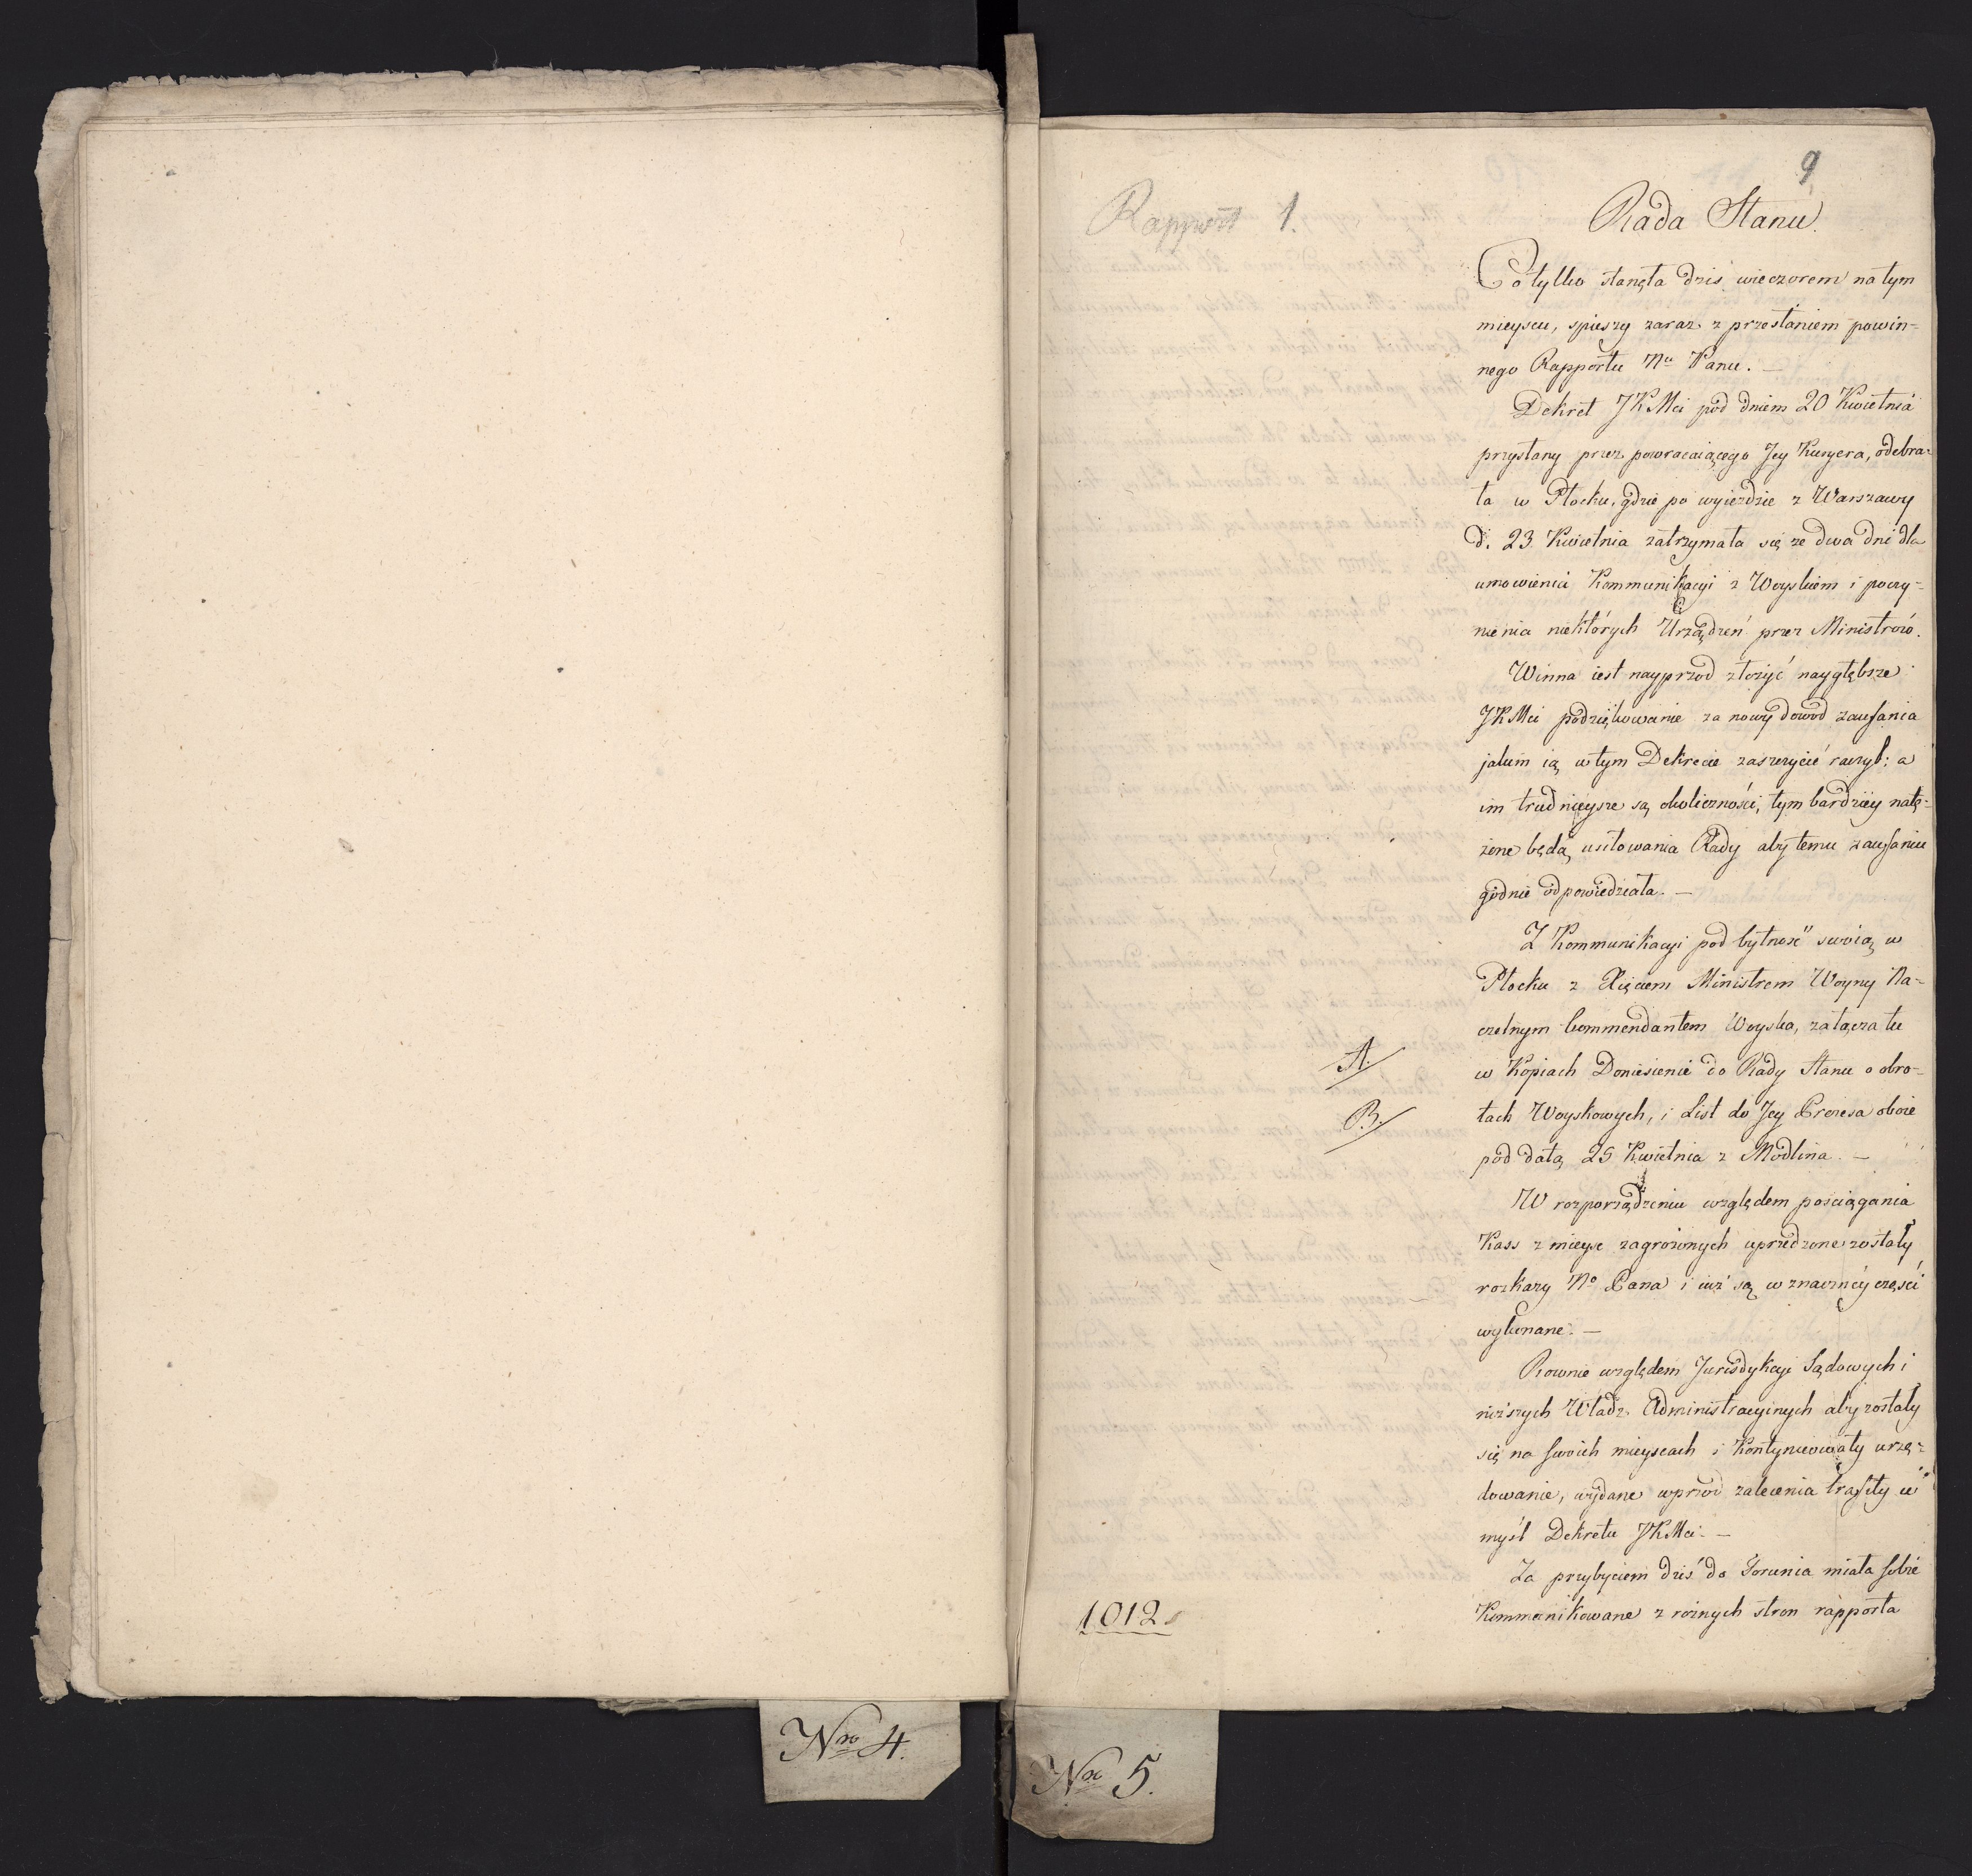 9
Rapport 1.
Rada Stanu.
Co tylko stanęła dziś wieczorem na tym
mieyscu, spieszy zaraz z przesłaniem powin-
nego Rapportu Nu Panu. —
Dekret JKMci pod dniem 20 Kwietnia
przysłany przez powracaiącego Jey Kuryera, odebra-
ła w Płocku, gdzie po wyieździe z Warszawy
d. 23 Kwietnia zatrzymała się ze dwa dni dla
umowienia Kommunikacyi z Woyskiem i poczy-
nienia niektórych Urządzeń przez Ministrów.
Winna iest nayprzod złożyć naygłębsze
JKMci podziękowanie za nowy dowod zaufania
jakim ią w tym Dekrecie zaszczycić raczył: a
im trudnieysze są okoliczności, tym bardziey natę-
żone będą usiłowania Rady aby temu zaufaniu
godnie odpowiedziała. —
Z Kommunikacyi pod bytność swoią w
Płocku z Xięciem Ministrem Woyny Na-
czelnym kommendantem Woyska, załącza tu
A./
w Kopiach Doniesienie do Rady Stanu o obro-
B./
tach Woyskowych, i List do Jey Prezesa oboie
pod datą 25 Kwietnia z Modlina. —
W rozporządzeniu względem pościągania
Kass z mieysc zagrożonych uprzedzone zostały
rozkazy No Pana i iuż są w znaczney części
wykonane. —
Rownie względem Jurisdykcyi Sądowych i
niższych Władz Administracyinych aby zostały
się na swoich mieyscach i Kontynuowały urzę-
dowanie, wydane wprzód zalecenia trafiły w
myśl Dekretu JKMci. —
Za przybyciem dziś do Torunia miała sobie
Kommunikowane z rożnych stron rapporta
1012
Nro 4.
Nro 5.